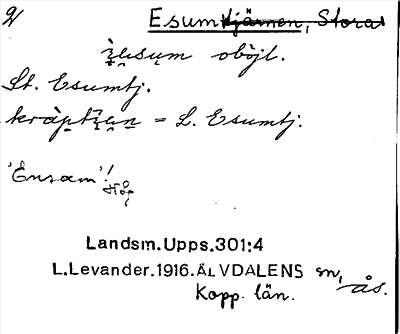 2/ Esumtjärnen, Stora
ʒe̮sum oböjl.
St. Esumtj.
kràptʒe̮n = L. Esumtj.
'Ensam'!
Landsm.Upps.301:4
L.Levander.1916.ÄLVDALENS sn,
Kopp. län. Ås.